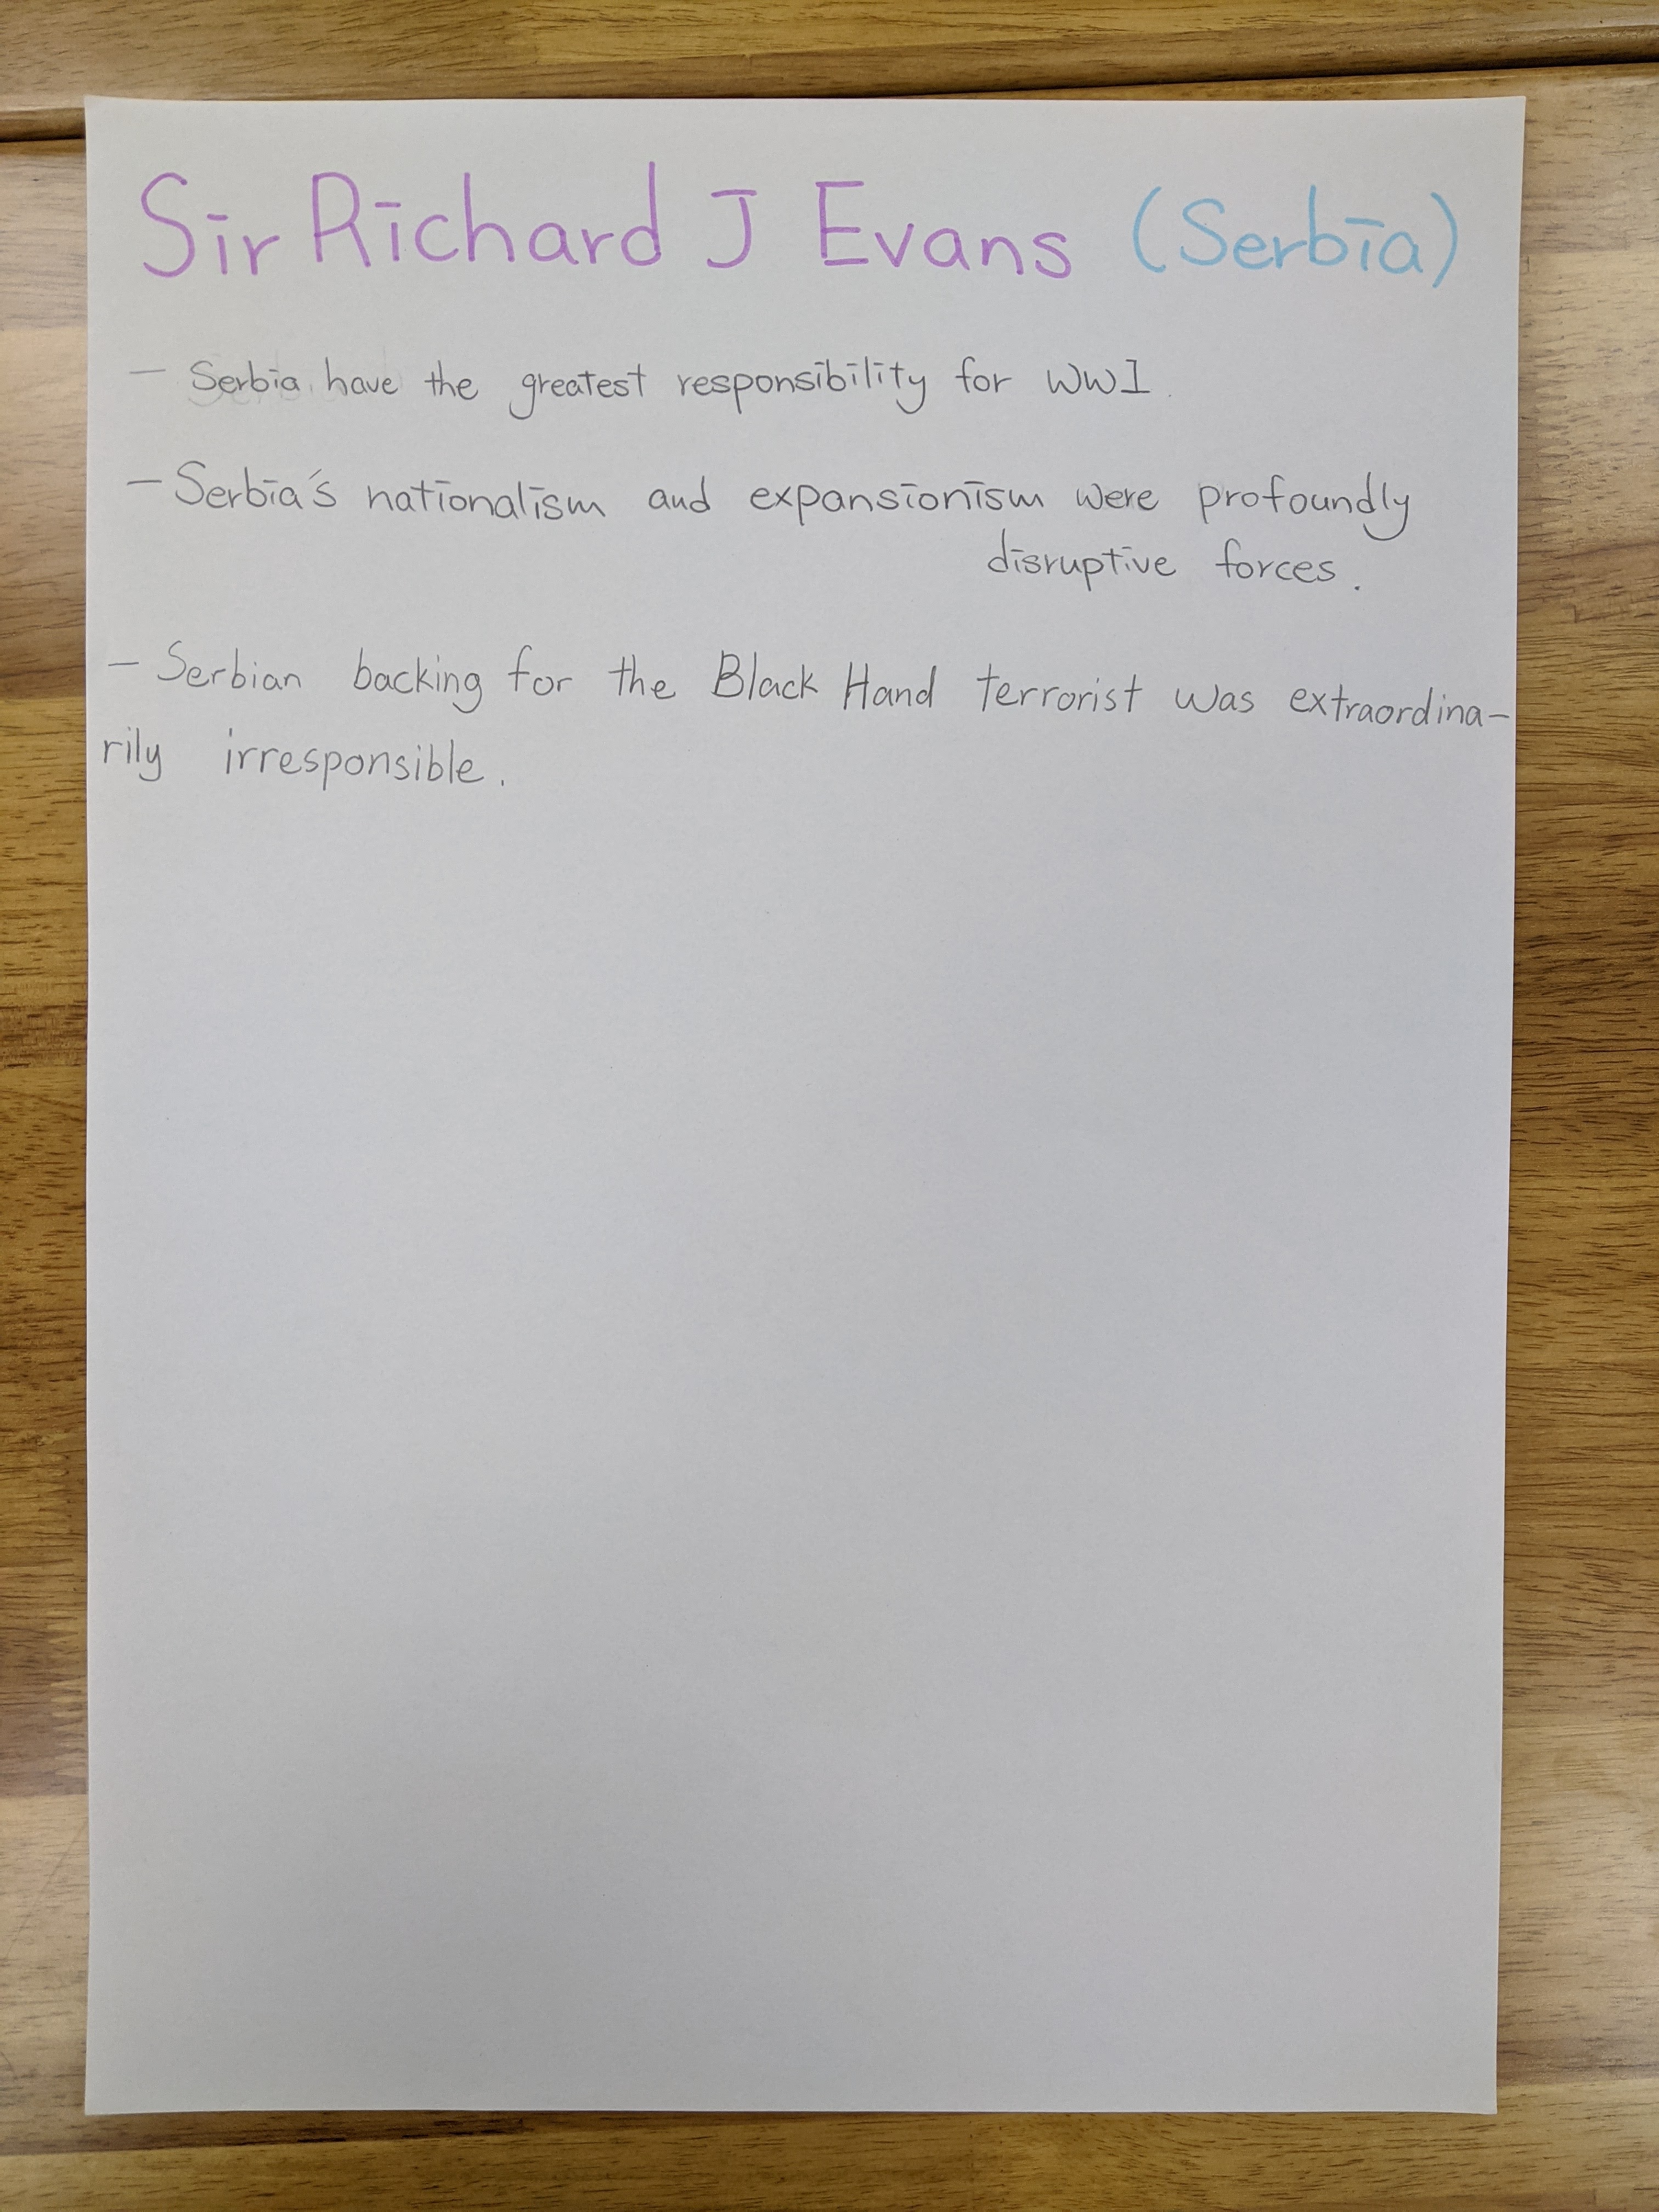 Sir Richard J Evans (Serbia)
– Serbia have the greatest responsibility for WW1.
– Serbia's nationalism and expansionism were profoundly
disruptive forces.
– Serbian backing for the Black Hand terrorist was extraordina-
rily irresponsible.